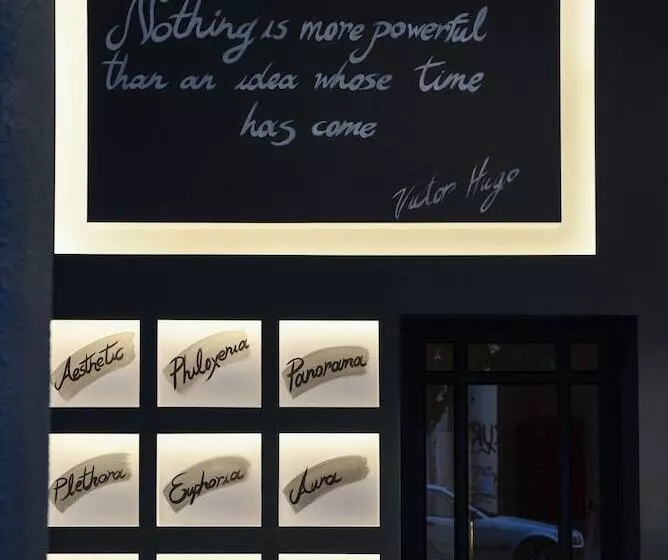 Nothing is more powerful
than an idea whose time
has come
Victor Hugo
Aesthetic
Philoxenia
Panorama
Plethora
Euphoria
Aura